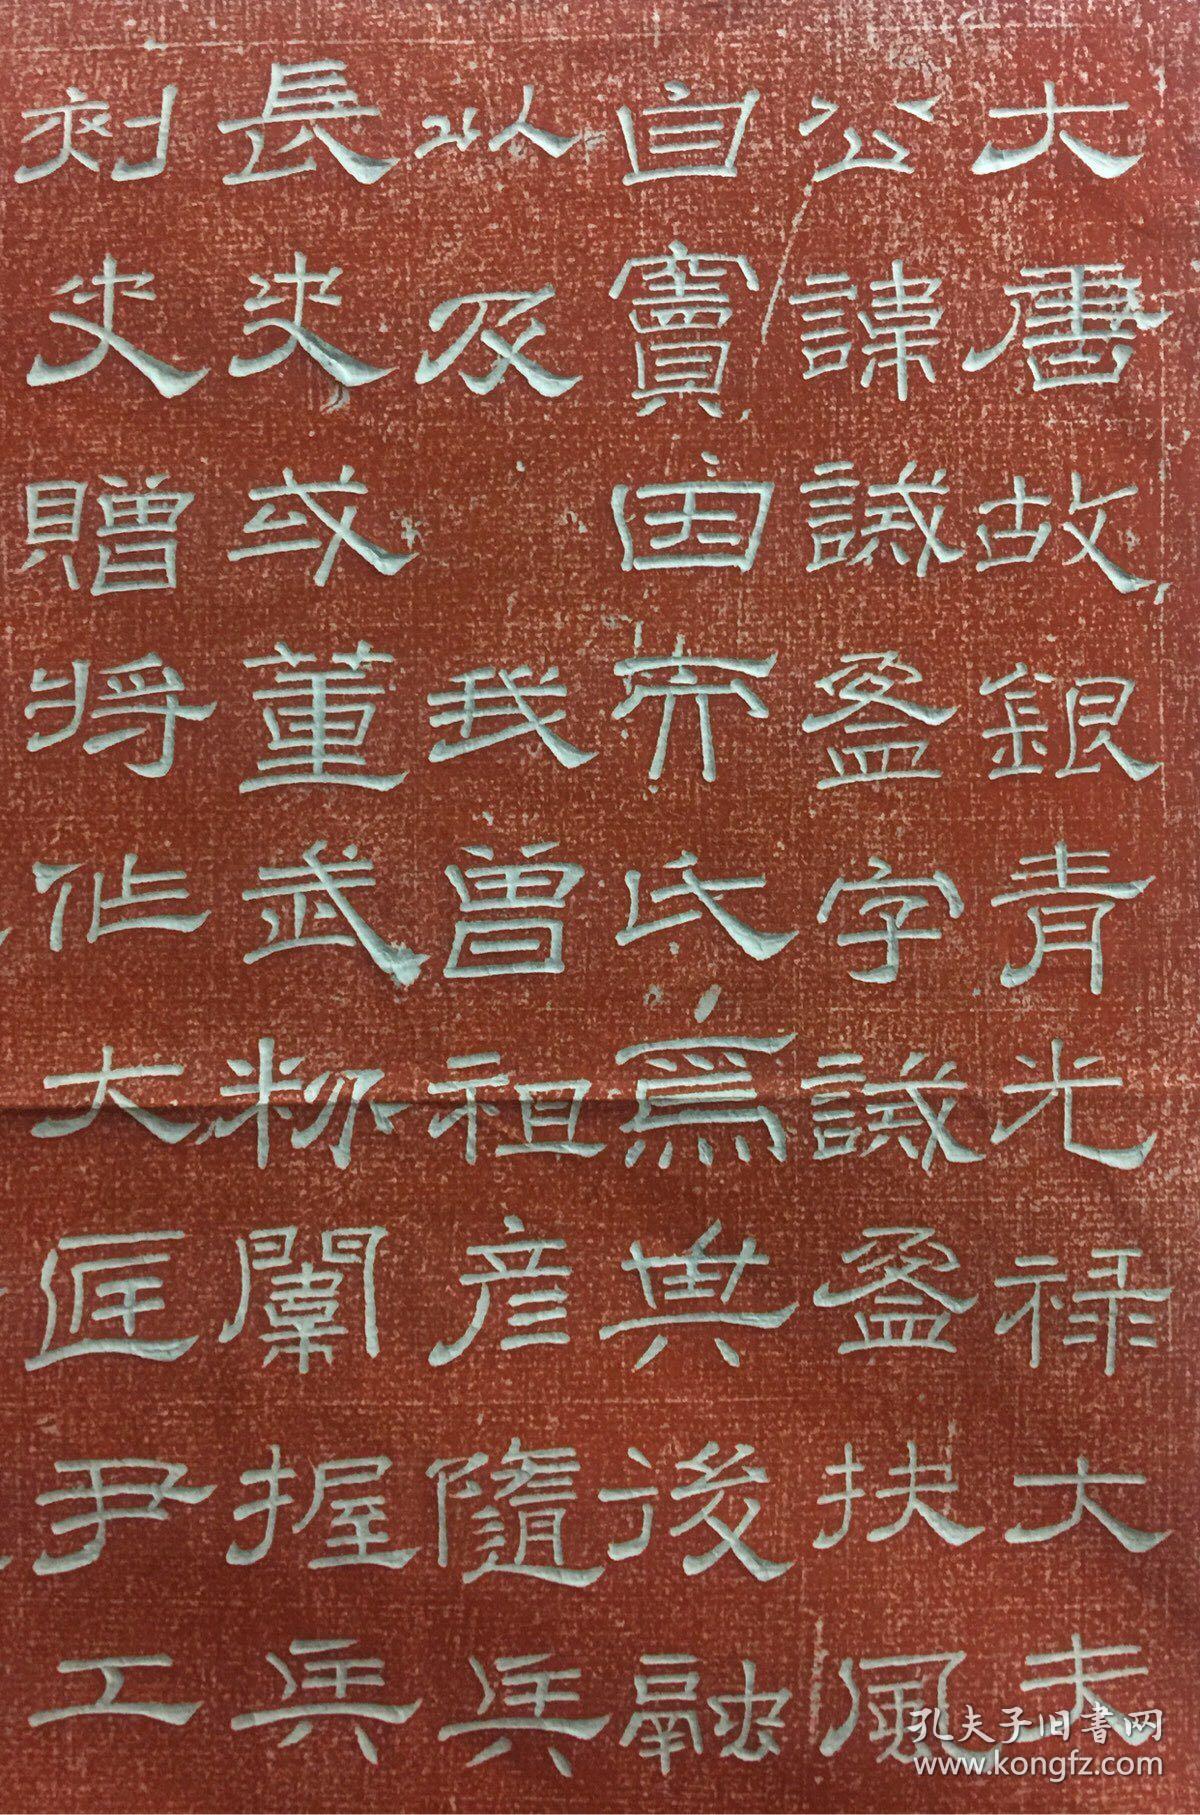 大唐故銀青光祿大夫
公諱誡盈字誡盈扶風
自竇因亦氏焉其後融
以及 我曾祖彥隨兵
長史或董武粉闈握兵
刺史贈將作大匠尹工
孔夫子旧書网
www.kongfz.com